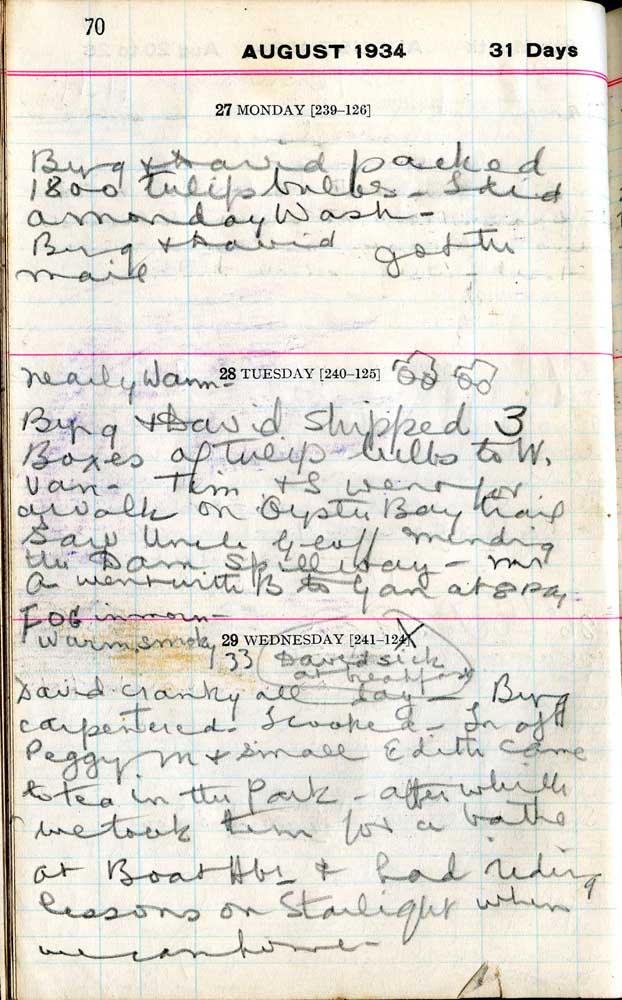 70
AUGUST 1934 31 Days
27 MONDAY [239–126]
Byng & David packed
1800 tulip bulbs - I did
a monday Wash -
Byng & David got the
mail
28 TUESDAY [240–125]
nearly Warm -
Byng & David shipped 3
Boxes of Tulip bulbs to W.
Van - Tim & I went for
a walk on Oyster Bay trail
Saw Uncle Geoff mending
the Dam Spillway - Mr
A went with B to Gan at 8 P.M.
29 WEDNESDAY [241–124]
FOG in morn -
Warm, smoky
33 David sick
at breakfast
David cranky all day - Byng
carpentered - I cooked - In aft
Peggy M & small Edith came
to tea in the Park - after which
we took them for a bathe
at Boat Hbr & had riding
lessons on Starlight when
we came home -